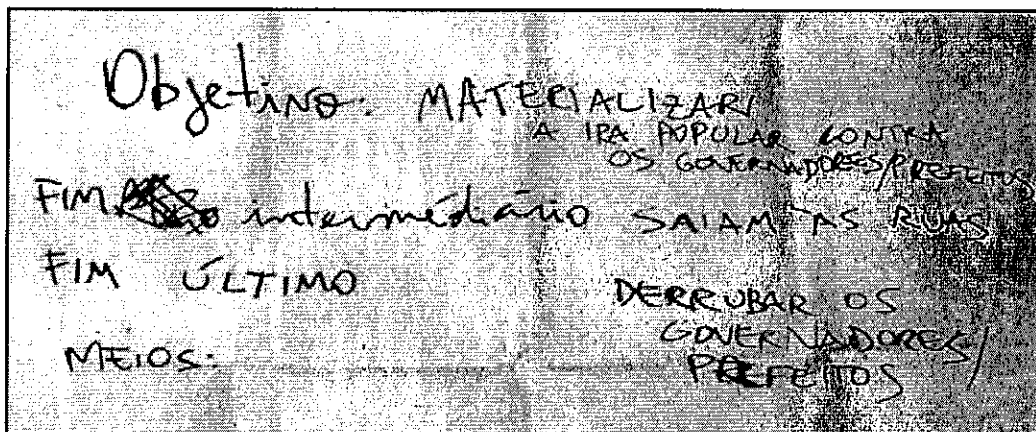 Objetivo: MATERIALIZAR
A IRA POPULAR CONTRA
OS GOVERNADORES/PREFEITOS
FIM intermédiário SAIAM ÀS RUAS
FIM ÚLTIMO
DERRUBAR OS
GOVERNADORES/
PREFEITOS
MEIOS: